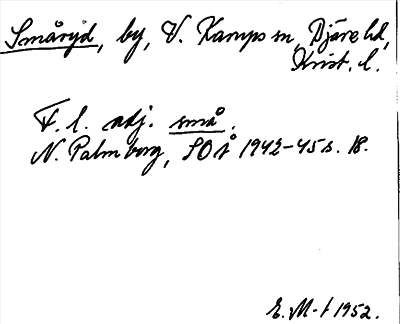 Småryd, by, V. Karups sn, Bjäre hd,
Krist. l.
F. l. adj. små.
N. Palmborg, SOÅ 1942-45 s. 18.
E. M-t 1952.